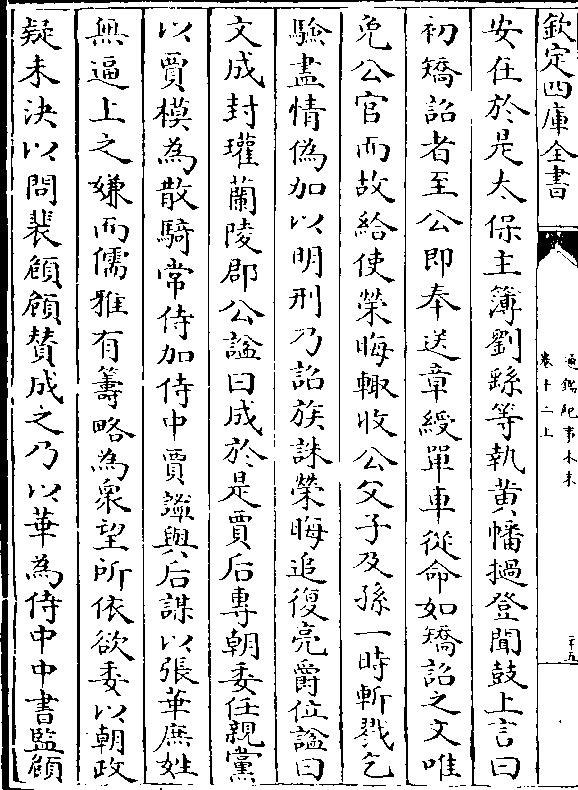 欽定四庫全書
通鑑紀事本末
卷十二上
二十五
安在於是太保主簿劉繇等執黃幡撾登聞鼓上言曰
初矯詔者至公即奉送章綬單車從命如矯詔之文唯
免公官而故給使榮晦輙收公父子及孫一時斬戮乞
驗盡情偽加以明刑乃詔族誅榮晦追復亮爵位諡曰
文成封瓘蘭陵郡公諡曰成於是賈后專朝委任親黨
以賈模為散騎常侍加侍中賈謐與后謀以張華庶姓
無逼上之嫌而儒雅有籌略為衆望所依欲委以朝政
疑未決以問裴頠頠賛成之乃以華為侍中中書監頠